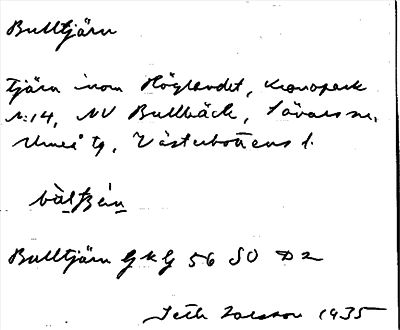 Bulltjärn
tjärn inom Höglandet, kronopark
N:14, NV Bullbäck, Sävars sn.
Umeå tg, Västerbottens l.
Bulltjärn GkG 56 SO D2
Seth Larsson 1935